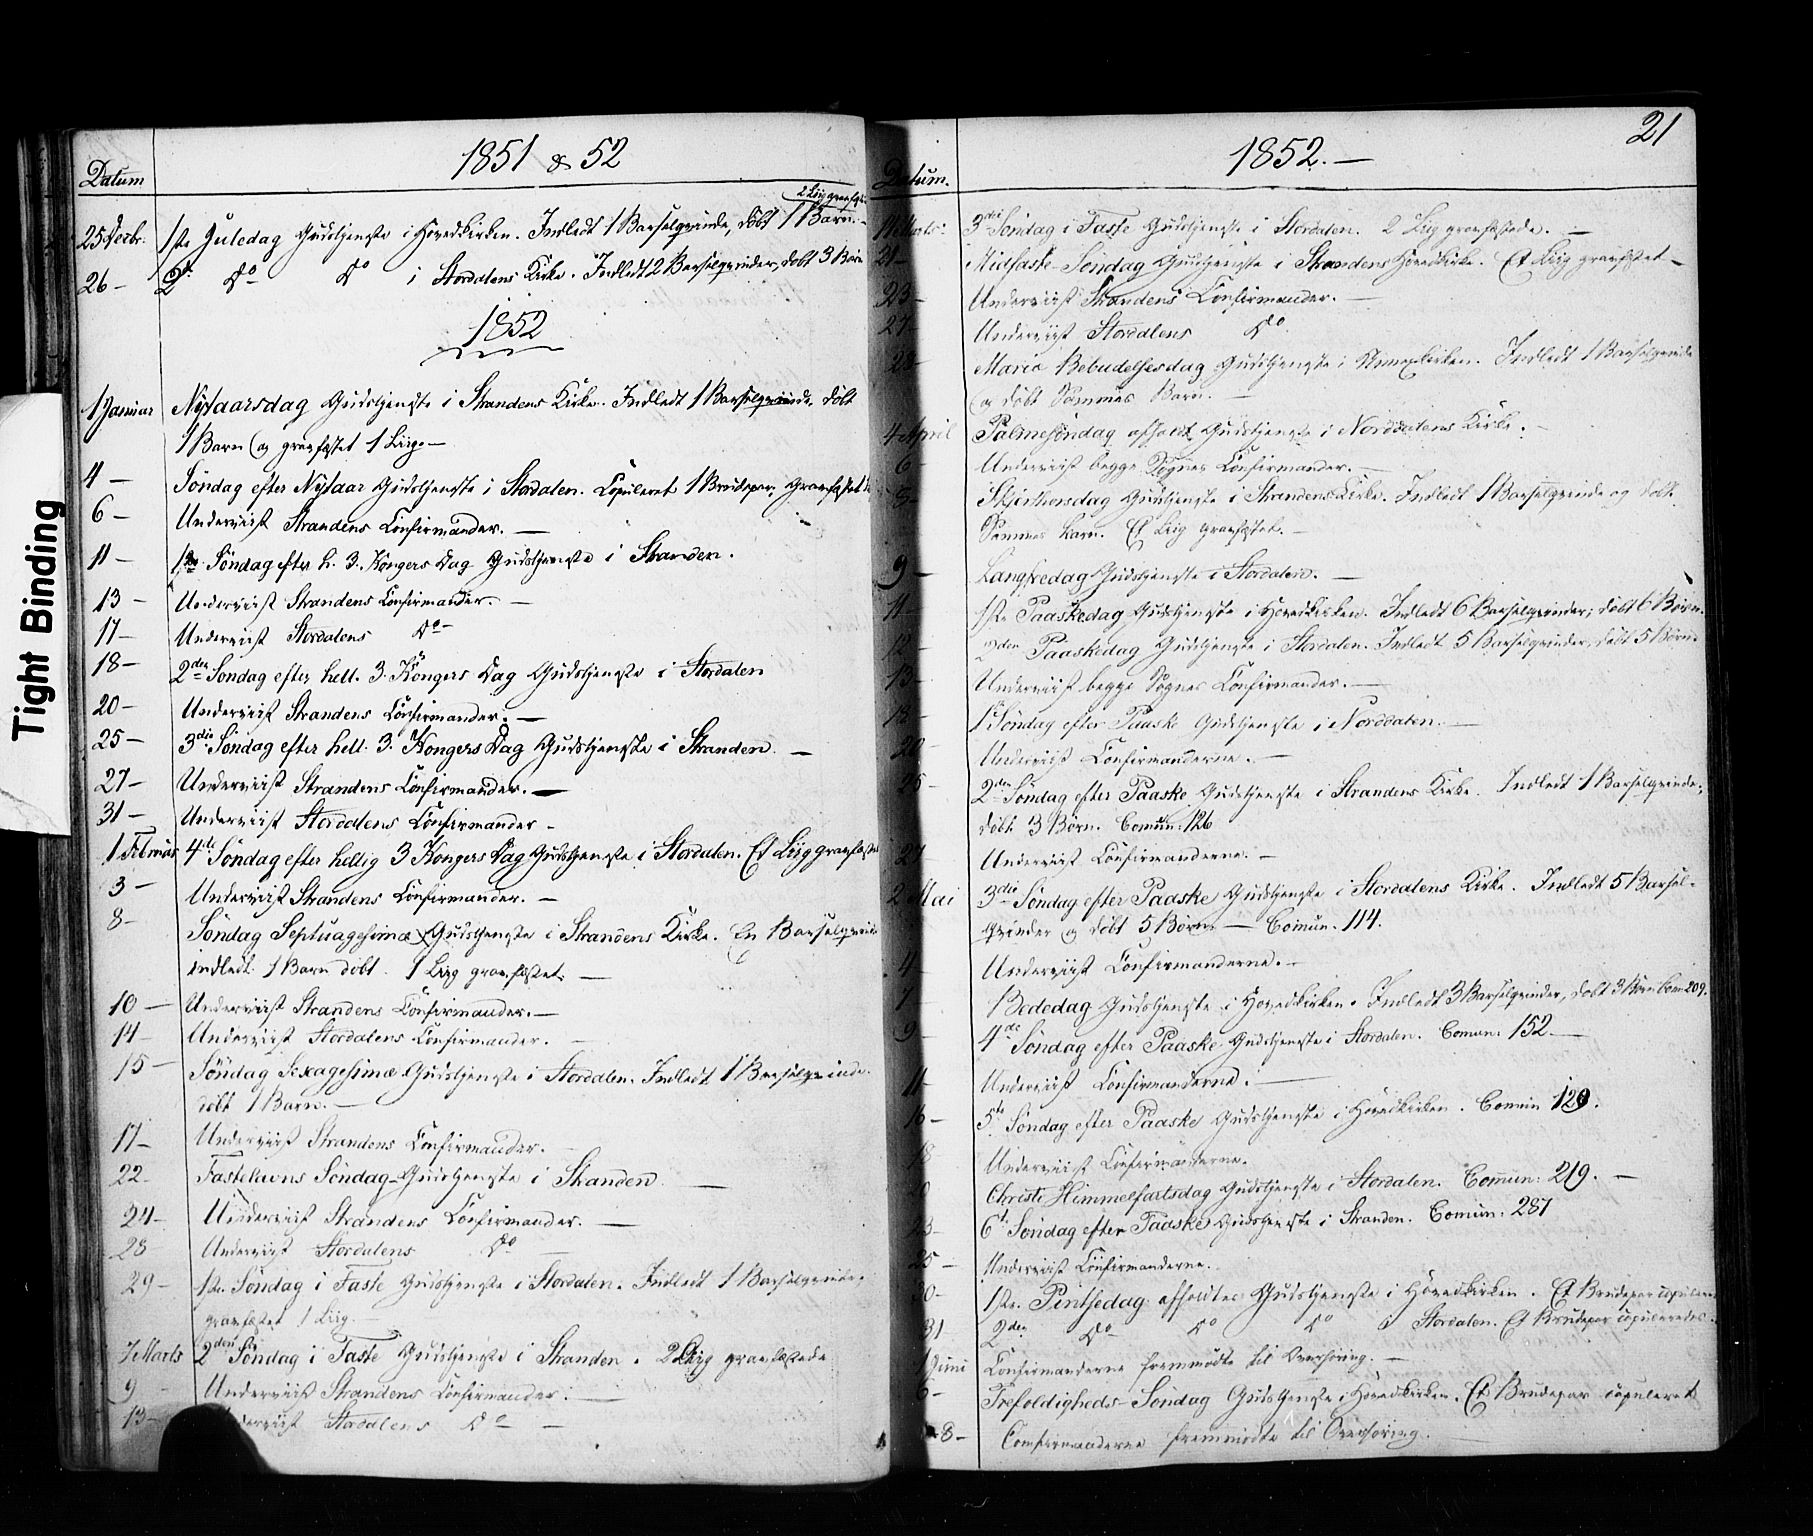 1851 & 52
Datum
2 Liig gravfæst.
25 Decbr. 1ste Juledag Gudstjeneste i Hovedkirken. Indledt 1 Barselqvinde, døbt 1 Barn. -
26 - 2den Do Do i Stordalens Kirke. Indledt 2 Barselqvinder, døbt 3 Børn
1852
1 Januar Nytaarsdag Gudstjeneste i Strandens Kirke. Indledt 1 Barselqvinde, døbt
1 Barn og gravfæstet 1 Liig. -
4 - Søndag efter Nytaar Gudstjeneste i Stordalen. Copuleret 1 Brudepar. Gravfæstet
6 - Underviist Strandens Confirmander. -
11 - 1ste Søndag efter h. 3. Kongers Dag Gudstjeneste i Stranden.
13 - Underviist Strandens Confirmander. -
17 - Underviist Stordalens Do -
18 - 2den Søndag efter hell. 3. Kongers Dag Gudstjeneste i Stordalen
20 - Underviist Strandens Confirmander. -
25 - 3die Søndag efter hell. 3. Kongers Dag Gudstjeneste i Stranden. -
27 - Underviist Strandens Confirmander. -
31 - Underviist Stordalens Confirmander -
1 Februar 4de Søndag efter hellig 3 Kongers Dag Gudstjeneste i Stordalen. Et Liig gravfæstet
3 - Underviist Strandens Confirmander. -
8 - Søndag Septuagesimæ Gudstjeneste i Strandens Kirke. En Barselqvinde
indledt. 1 Barn døbt. 1 Liig gravfæstet. -
10 - Underviist Strandens Confirmander. -
14 - Underviist Stordalens Confirmander. -
15 - Søndag Sexagesimæ Gudstjeneste i Stordalen. Indledt 1 Barselqvinde.
døbt 1 Barn. -
17 - Underviist Strandens Confirmander.
22 - Fastelavns Søndag Gudstjeneste i Stranden -
24 - Underviist Strandens Confirmander. -
28 Underviist Stordalens Do -
29 - 1ste Søndag i Faste Gudstjeneste i Stordalen. Indledt 1 Barselqvinde,
gravfæstet 1 Liig. -
7 Marts 2den Søndag i Faste Gudstjeneste i Stranden. 2 Liig gravfæstede
9 - Underviist Strandens Confirmander. -
13 - Underviist Stordalens Do -
21
1852. -
Datum.
14 Marts. 3die Søndag i Faste Gudstjeneste i Stordalen. 2 Liig gravfæstede. -
21 - Midfaste-Søndag Gudstjeneste i Strandens Hovedkirke. Et Liig gravfæstet -
23 - Underviist Strandens Confirmander. -
27 - Underviist Stordalens Do
Mariæ Bebudelsesdag Gudstjeneste i Annexkirken. Indledt 1 Barselqvinde
og døbt Sammes Barn. -
4 April Palmesøndag afholdt Gudstjeneste i Norddalens Kirke. -
6 - Underviist begge Sognes Confirmander. -
8 - Skjærthorsdag Gudstjeneste i Strandens Kirke. Indledt 1 Barselqvinde og døbt
Sammes Barn. Et Liig gravfæstet. -
9 - Langfredag Gudstjeneste i Stordalen. -
11 - 1ste Paaskedag Gudstjeneste i Hovedkirken. Indledt 6 Barselqvinder; døbt 6 Børn.
12 - 2den Paaskedag Gudstjeneste i Stordalen. Indledt 5 Barselqvinder, døbt 5 Børn.
13 - Underviist begge Sognes Confirmander. -
18 - 1ste Søndag efter Paaske Gudstjeneste i Norddalen. -
20 - Underviist Confirmanderne. -
25 - 2den Søndag efter Paaske Gudstjeneste i Strandens Kirke. Indledt 1 Barselqvinde,
døbt 3 Børn. Comun: 126
27 Underviist Confirmanderne. -
2 Mai 3die Søndag efter Paaske Gudstjeneste i Stordalens Kirke. Indledt 5 Barsel-
qvinder og døbt 5 Børn. - Comun. 114.
4 - Underviist Confirmanderne. -
7 - Bededag Gudstjeneste i Hovedkirken. Indledt 3 Barselqvinder, døbt 3 Børn Com 209.
9 - 4de Søndag efter Paaske Gudstjeneste i Stordalen. Comun: 152. -
11 - Underviist Confirmanderne. -
16 - 5te Søndag efter Paaske Gudstjeneste i Hovedkirken. Comun 129.
18 Underviist Confirmanderne.
20 Christi Himmelfartsdag Gudstjeneste i Stordalen. Comun: 219. -
23 - 6te Søndag efter Paaske Gudstjeneste i Stranden. Comun: 287
25 - Underviist Confirmanderne.
30 - 1ste Pintsedag afholdtes Gudstjeneste i Hovedkirken. Et Brudepar copuleret
31 2den Do Do Do i Stordalen. Et Brudepar copuleredes.
1 Juni Confirmanderne fremmødte til Overhøring. -
6 - Trefoldigheds-Søndag Gudstjeneste i Hovedkirken. Et Brudepar copuleret
8 - Confirmanderne fremmødte til Overhøring. -
Tight Binding